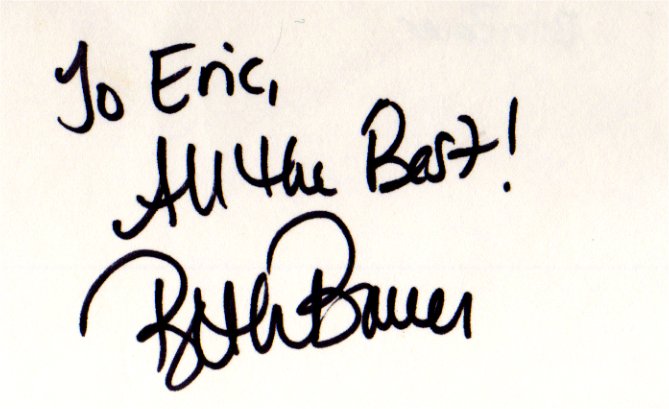 To Eric,
All the Best!
Beth Bauer